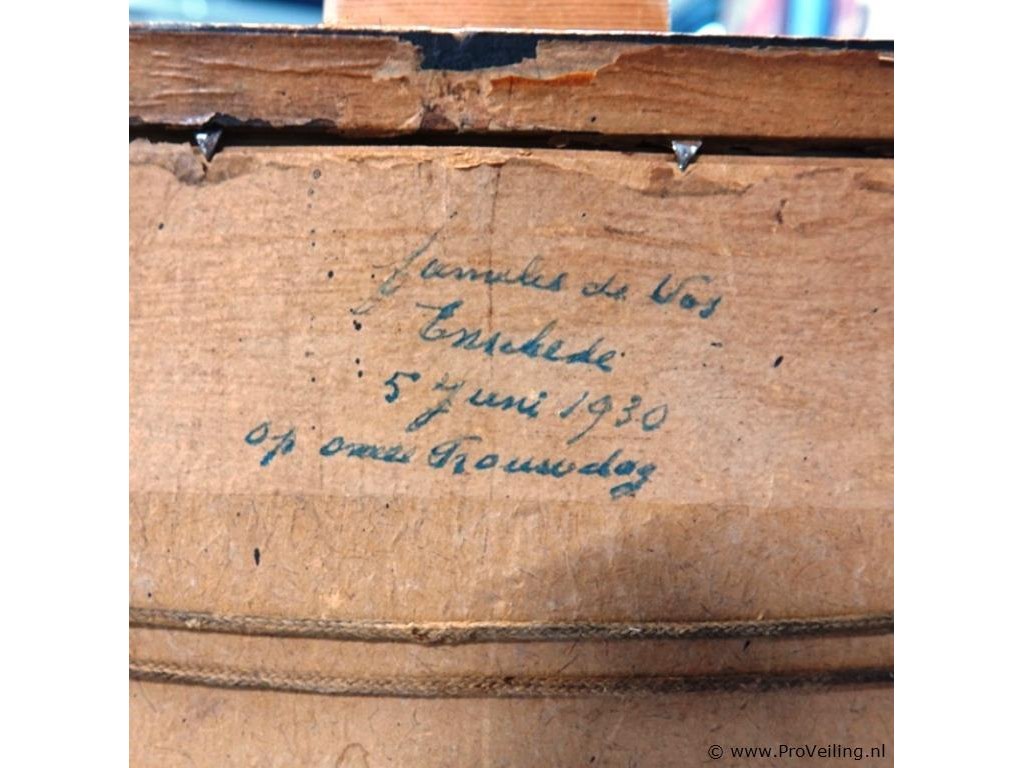 familie de Vos
Enschede
5 Juni 1930
op onze Trouwdag
© www.ProVeiling.nl